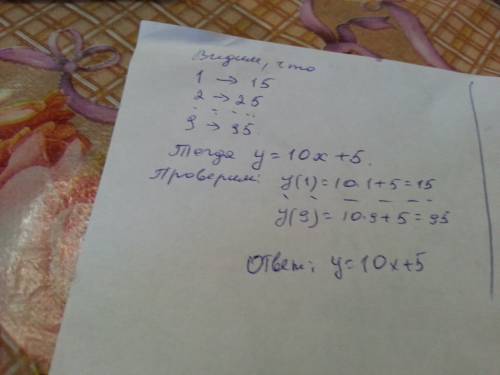 Видим, что
1 → 15
2 → 25
. . . . .
9 → 95.
Тогда y = 10x + 5.
Проверим: y(1) = 10·1 + 5 = 15
y(9) = 10·9 + 5 = 95
Ответ: y = 10x + 5